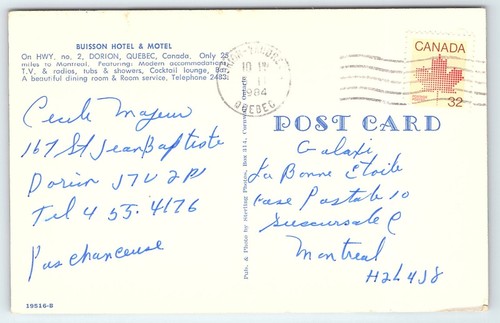 BUISSON HOTEL & MOTEL
On HWY. no. 2, DORION, QUEBEC, Canada. Only 25
miles to Montreal. Featuring: Modern accommodations,
T.V. & radios, tubs & showers, Cocktail lounge, Bar,
A beautiful dining room & Room service, Telephone 2483.
10 PM
1984
QUEBEC
CANADA
32
POST CARD
Cecile Majeur
167 St Jean Baptiste
Dorion J7V 2P1
Tel 455.4176
Pas chanceuse
Pub. & Photo by Sterling Photos, Box 314, Cornwall, Ontario
Galaxi
La Bonne Étoile
Case Postale 10
Succursale C
Montreal
H2L 4J8
19516-B